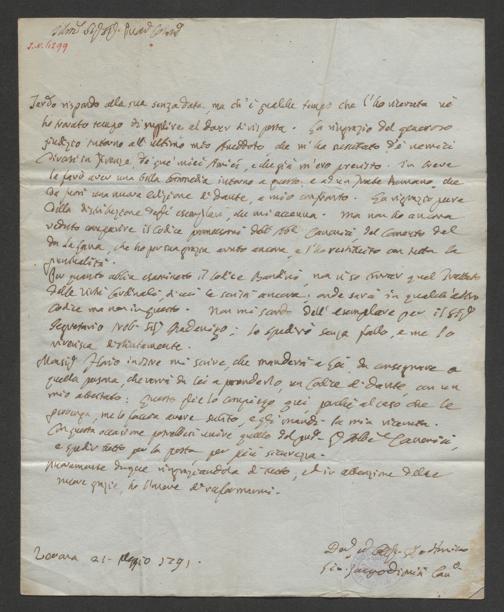 Tardo rispondo alla sua senza data, ma ch'è qualche tempo che l'ho ricevuta nè
ho trovato tempo di supplire al dover di risposta. La ringrazio del generoso
giudizio intorno all'ultimo mio Aneddoto che mi ha suscitato de' nemici
diversi in Firenze de que' miei Amici, e che già m'ero previsto. In breve
le farò aver una bella Commedia intorno a questo, e ad un Frate Romano, che
dà fuori una nuova edizione di Dante, a mio confronto. La ringrazio pure
della distribuzione degli esemplari, che mi accenna. Ma non ho ancora
veduto comparire il Codice promessomi dall' Canonici, del Convito del
che ho per sua grazia avuto ancora, e l'ho restituito con tutta la
puntualità.
Per quanto abbia esaminato il Codice Bandini, non vi so trovar quel Trattato
delle Virtù Cardinali, di cui le scrissi ancora, onde sarà in qualch'altro
Codice ma non in questo. Non mi scordo dell' esemplare per il
Segretario lo spedirò senza fallo, e me lo
riverisca distintamente.
in Udine mi scrive, che manderà a Lei, da consegnare a
quella persona, che verrà da lei a prenderlo, un Codice di Dante con un
mio attestato: Questo glie lo compiego qui, perchè al caso che le
pervenga, me lo faccia avere subito, e gli mandi la mia ricevuta.
Con questa occasione potrebbesi unire quello del Canonici,
e spedir tutto per la posta per più sicurezza.
Nuovamente dunque ringraziandola di tutto, ed in attenzione delle
nuove grazie, ho l'onore di raffermarmi.
Verona 21. Maggio 1791.
Gio. Jacopo Dionisi Can.